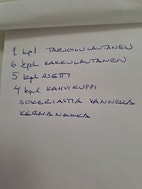 1 kpl TARJOILULAUTANEN
6 kpl KAKKULAUTANEN
5 kpl ASETTI
4 kpl KAHVIKUPPI
SOKERIASTIA KANNELLA
KERMANEKKA